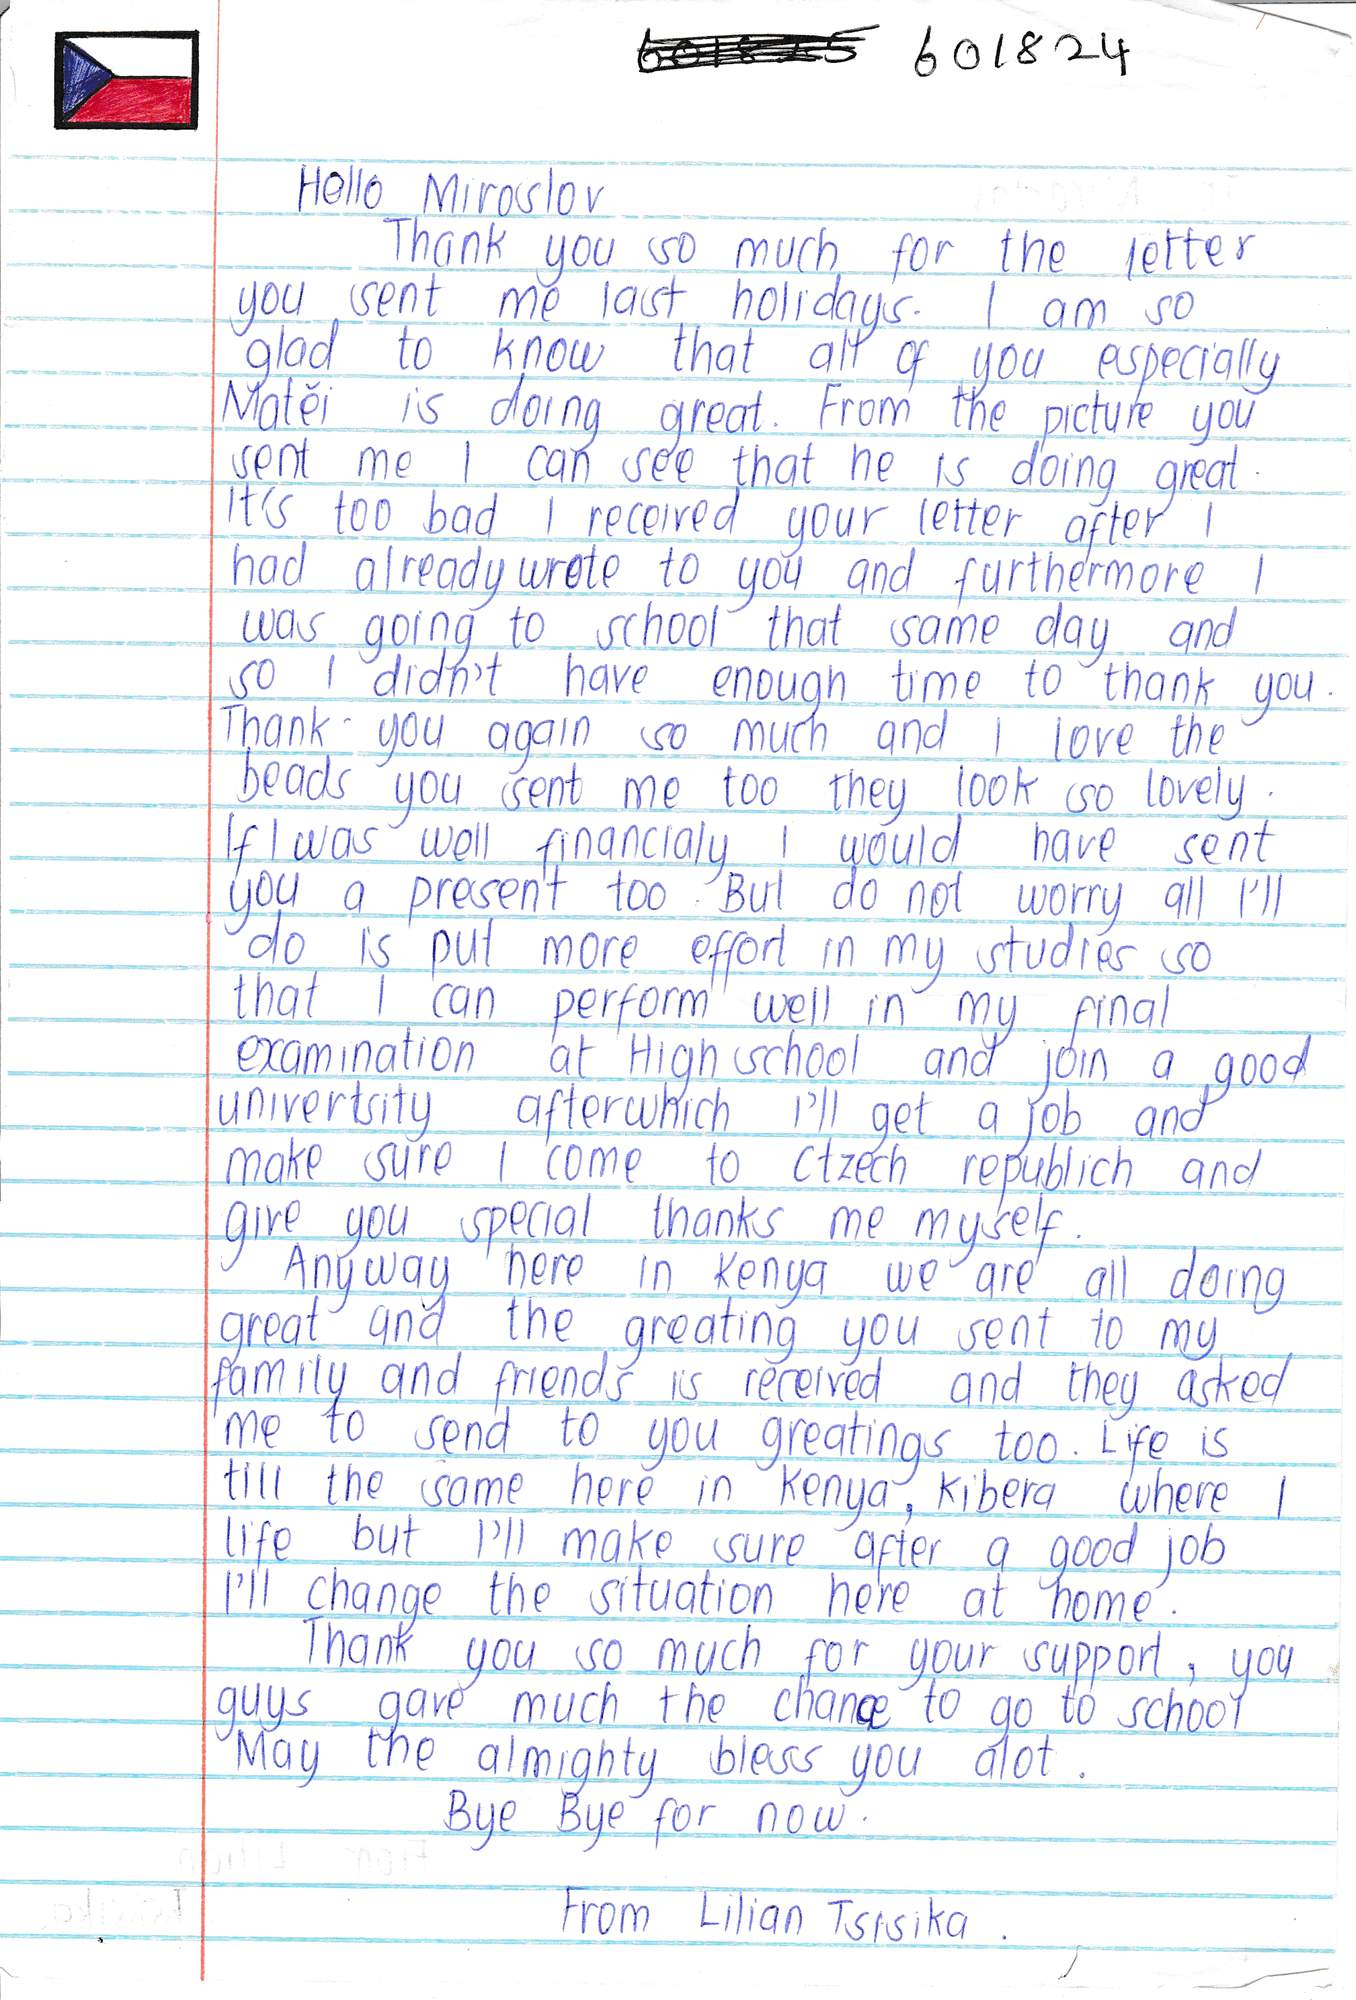 601825 601824
Hello Miroslov
Thank you so much for the letter
you sent me last holidays. I am so
glad to know that all of you especially
Matěi is doing great. From the picture you
sent me I can see that he is doing great.
It's too bad I received your letter after I
had already wrote to you and furthermore I
was going to school that same day and
so I didn't have enough time to thank you.
Thank you again so much and I love the
beads you sent me too they look so lovely.
If I was well financialy I would have sent
you a present too. But do not worry all I'll
do is put more effort in my studies so
that I can perform well in my final
examination at High school and join a good
univertsity afterwhich I'll get a job and
make sure I come to Ctzech republich and
give you special thanks me myself.
Anyway here in Kenya we are all doing
great and the greating you sent to my
family and friends is received and they asked
me to send to you greatings too. Life is
till the same here in Kenya, Kibera where I
life but I'll make sure after a good job
I'll change the situation here at home.
Thank you so much for your support, you
guys gave much the chance to go to school
May the almighty bless you alot.
Bye Bye for now.
From Lilian Tsisika.